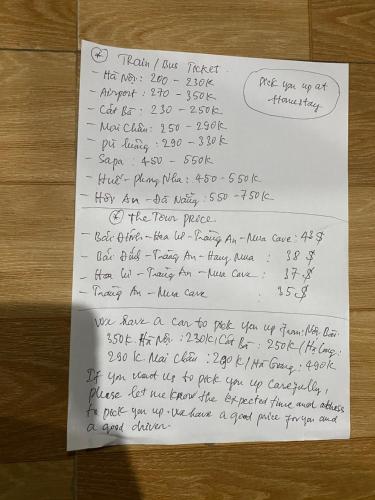 * Train / Bus Ticket.
Pick you up at
Homestay
- Hà Nội: 200 - 230K
- Airport: 270 - 350K
- Cát Bà: 230 - 250K
- Mai Châu: 250 - 290K
- pù luông: 290 - 330K
- Sapa: 450 - 550K
- Huế - phong Nha: 450 - 550K
- Hội An - Đà Nẵng: 550 - 750K
* The Tour price.
- Bái Đính - Hoa Lư - Tràng An - Mua Cave: 43$
- Bái Đính - Tràng An - Hang Mua : 38$
- Hoa Lư - Tràng An - Mua Cave : 37$
- Tràng An - Mua Cave : 35$
We have a car to pick you up from: Nội Bài:
350K. Hà Nội: 230K/Cát Bà: 250K/Hạ Long:
290K Mai Châu: 290K/Hà Giang: 490K
If you want us to pick you up carefully,
please let me know the expected time and address
to pick you up. We have a good price for you and
a good driver.